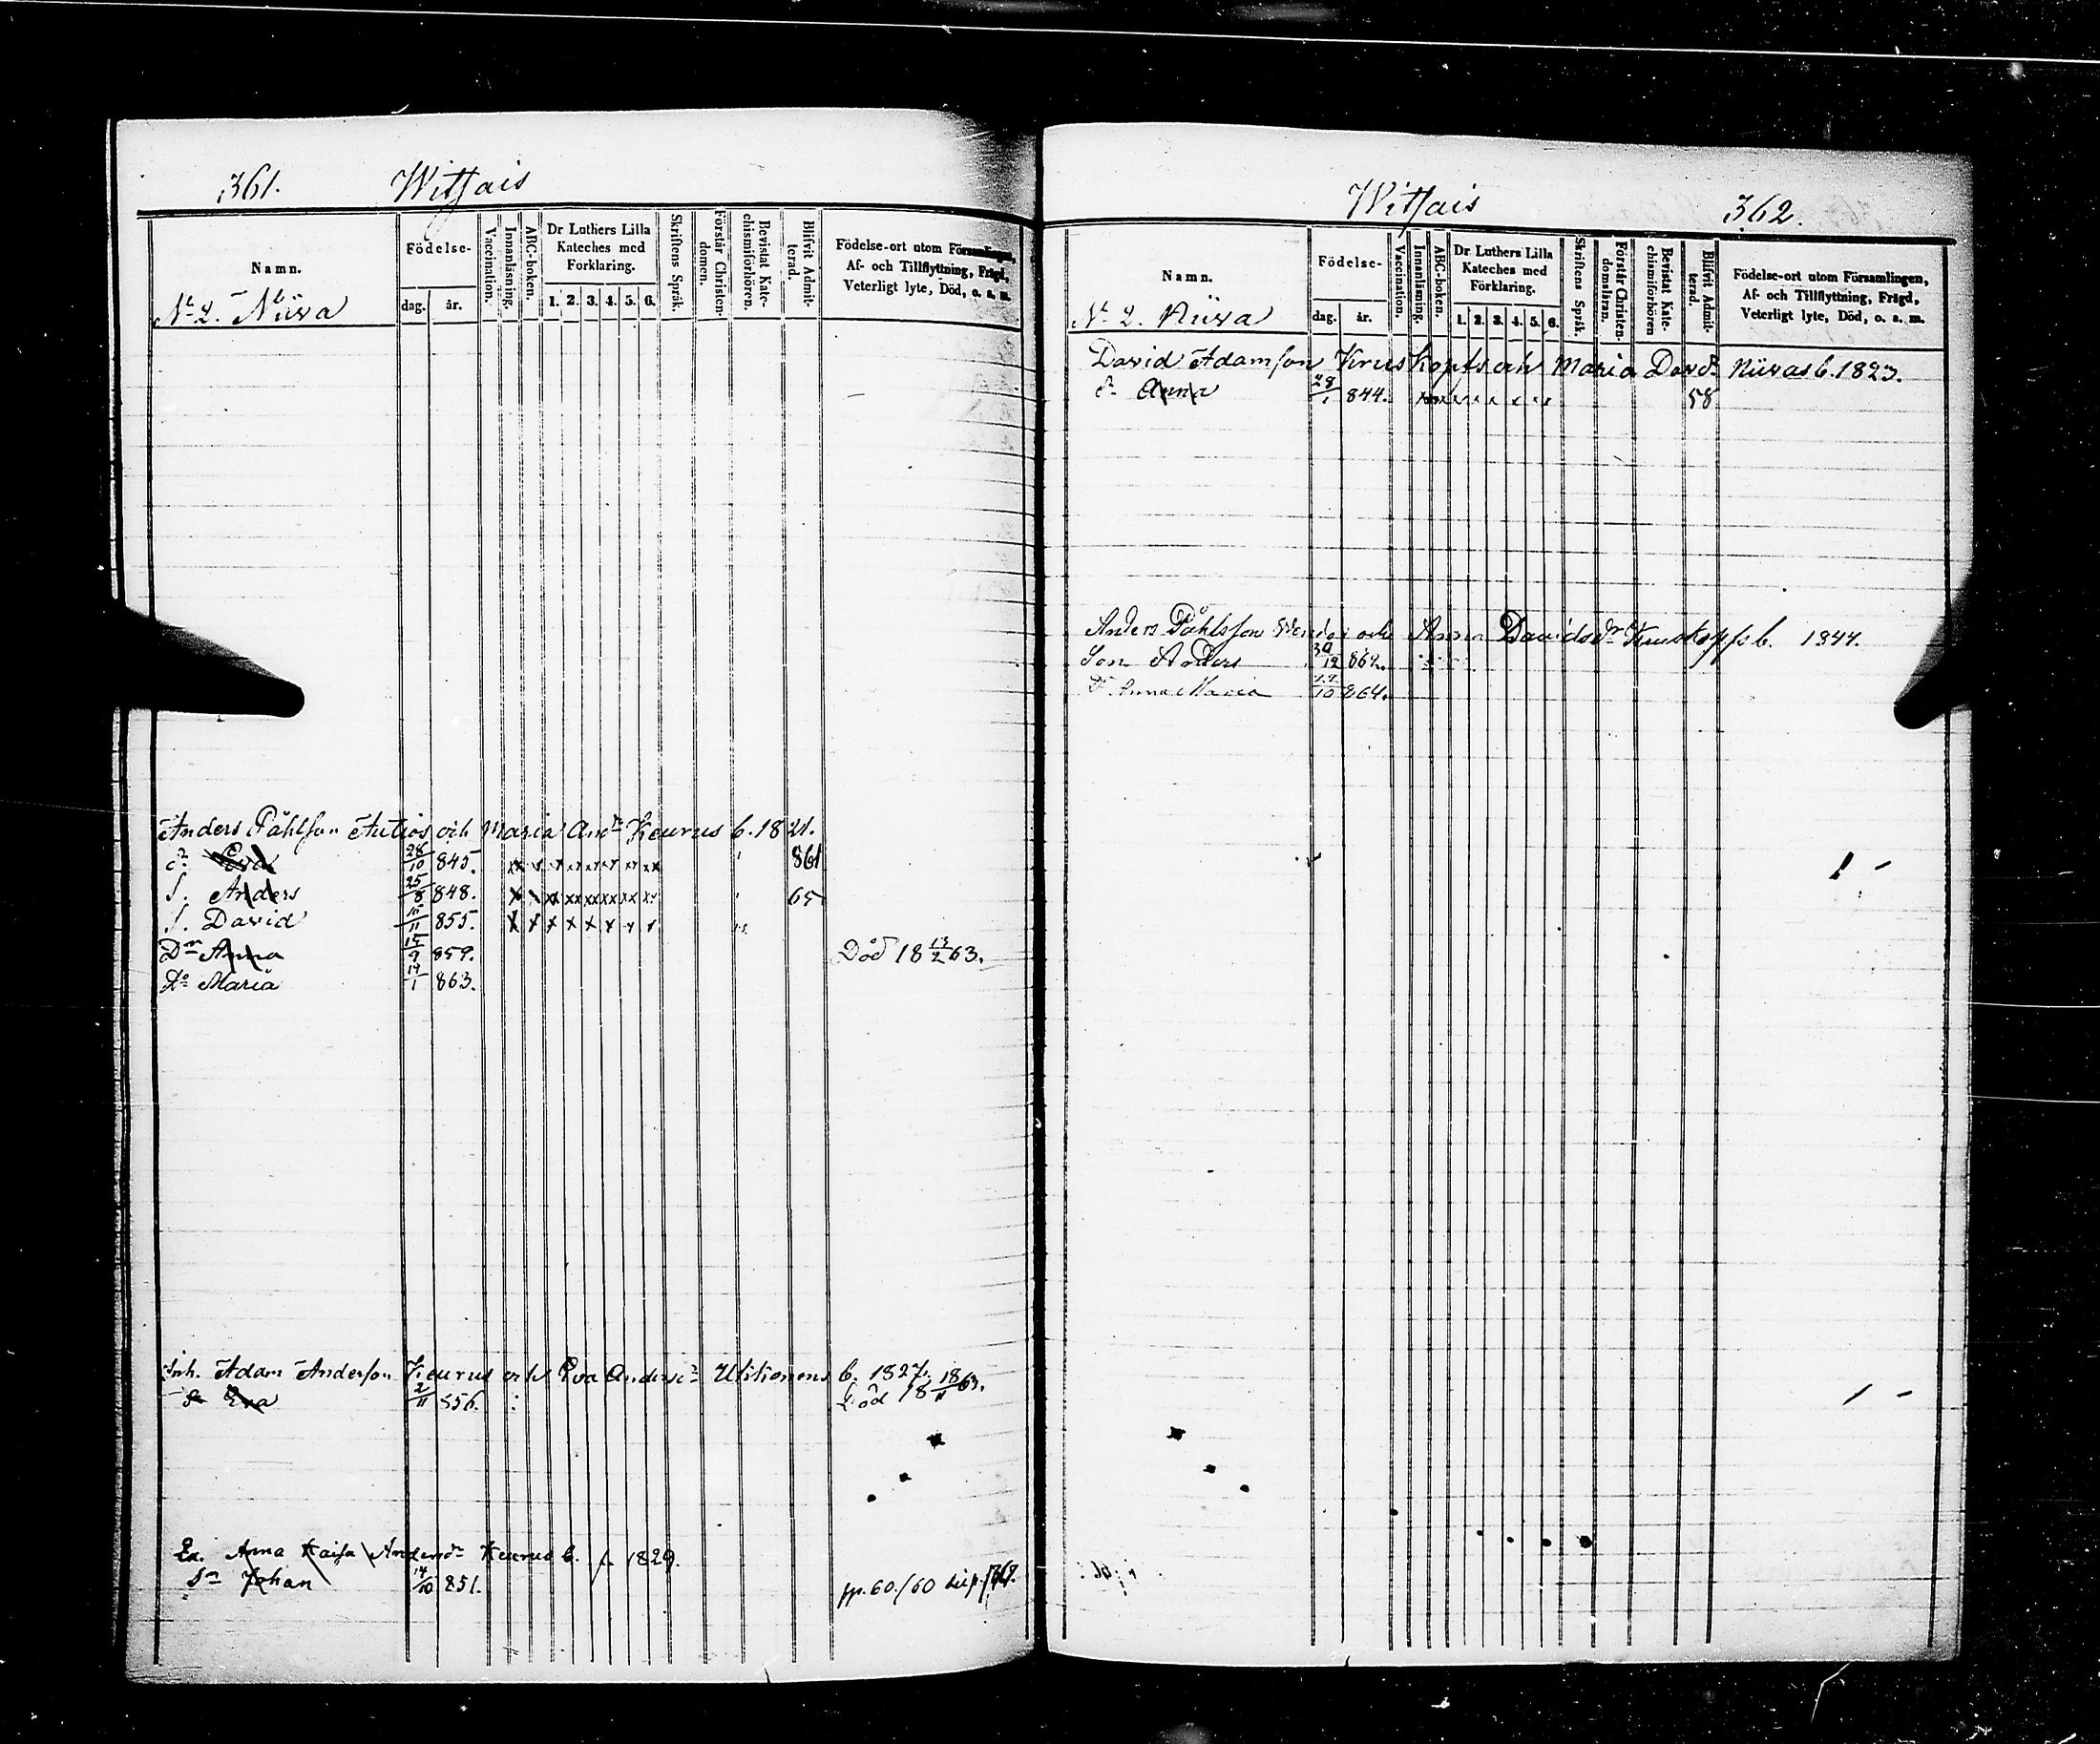 361. Witsais
Namn.
Födelse-
dag. år.
Vaccination.
Innanläsning.
ABC-boken.
Dr Luthers Lilla Kateches med Förklaring.
1. 2. 3. 4. 5. 6.
Skriftens Språk.
Förstår Christendomen.
Bevistat Katechismiförhören.
Blifvit Admitterad.
Födelse-ort utom Församlingen, Af- och Tillflyttning, Frägd, Veterligt lyte, Död, o. s. m.
No 2. Niisa
Anders Påhlson Autios och Maria And:dr Keurus b. 1821.
dr Eva 28/10 845. 861
S. Anders 25/8 848. 65
S. David 855.
Dr Anna 15/9 859. Död 18 13/2 63.
Do Maria 14/1 863.
Inh. Adam Anderson Keurus och Eva Anders:dr b. 1827.
Eva 2/11 856. Död 18 18/11 63.
Anna Kaisa Andersdr Keurus b. f. 1829.
Sn Johan 14/10 851.
Witsais 362.
Namn.
Födelse-
dag. år.
Vaccination.
Innanläsning.
ABC-boken.
Dr Luthers Lilla Kateches med Förklaring.
1. 2. 3. 4. 5. 6.
Skriftens Språk.
Förstår Christendomsläran.
Bevistat Katechismiförhören
Blifvit Admitterad.
Födelse-ort utom Församlingen, Af- och Tillflyttning, Frägd, Veterligt lyte, Död, o. s. m.
No 2. Niisa
David Adamson Kruskopfs och Maria Davdr Niisas b. 1823.
dr Anna 28/1 844. 58
Anders Påhlsson och Anna Davidsdr Kruskopfs b. 1844.
Son Anders 30/12 862.
Dr Anna Maria 864.